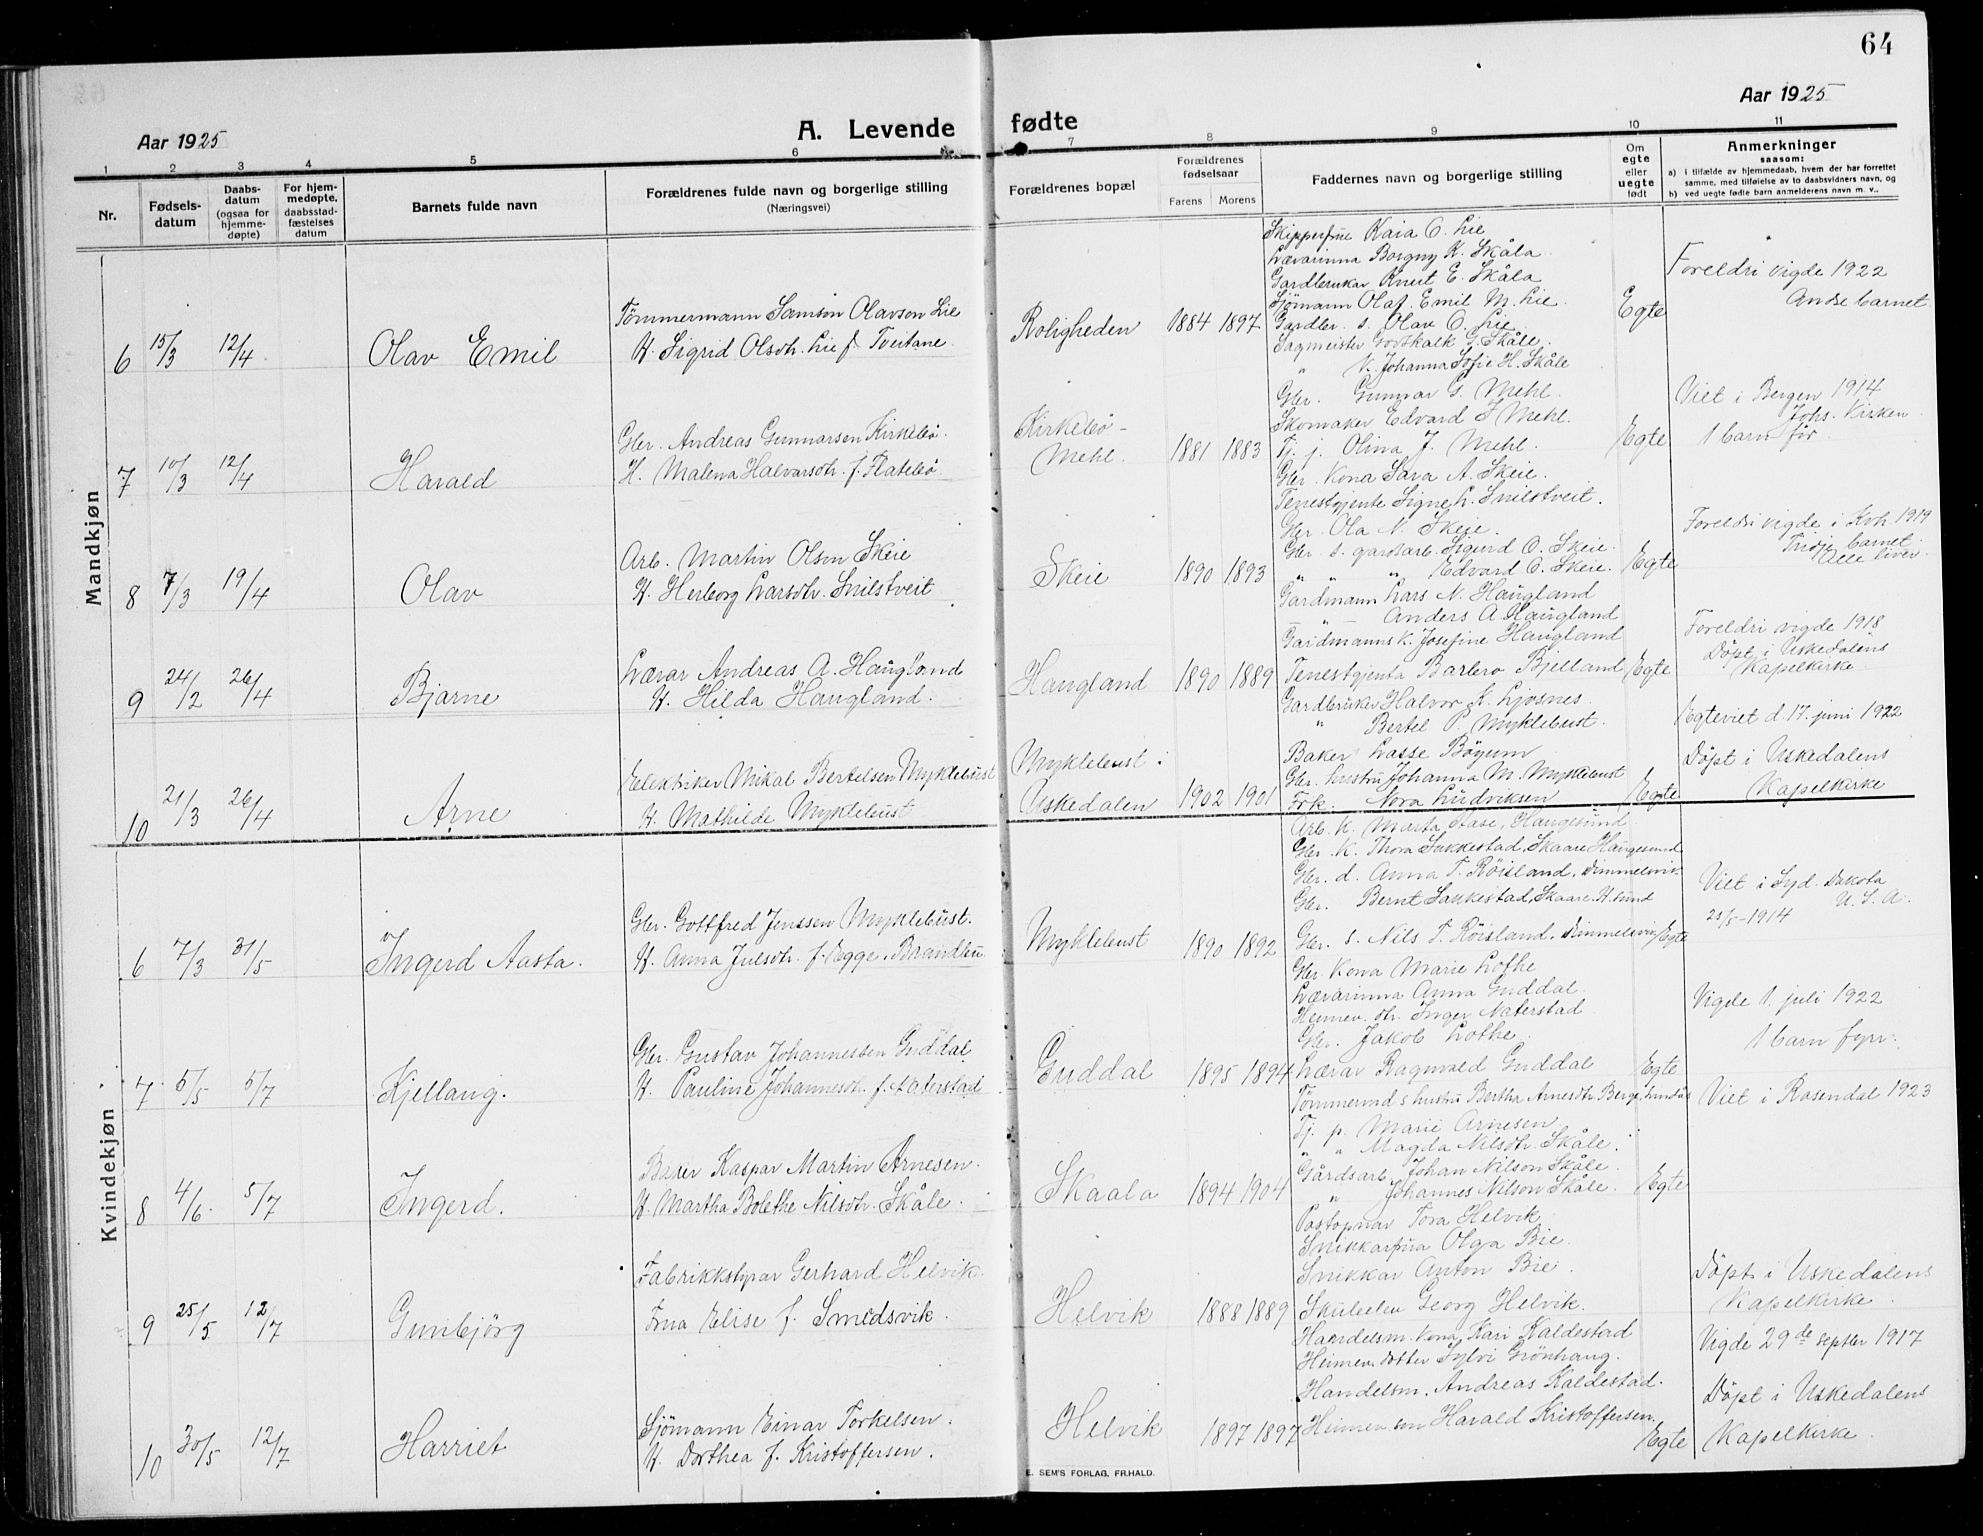 64
Aar 1925
A. Levende fødte
Aar 1925
1 2 3 4 5 6 7 8 9 10 11
Nr.
Fødsels-
datum
Daabs-
datum
(ogsaa for
hjemme-
døpte)
For hjem-
medøpte,
daabsstad-
fæstelses
datum
Barnets fulde navn
Forældrenes fulde navn og borgerlige stilling
(Næringsvei)
Forældrenes bopæl
Forældrenes
fødselsaar
Farens Morens
Faddernes navn og borgerlige stilling
Om
egte
eller
uegte
født
Anmerkninger
saasom:
a) i tilfælde av hjemmedaab, hvem der har forrettet
samme, med tilføielse av to daabsvidners navn, og
b) ved uegte fødte barn anmelderens navn m. v..
Mandkjøn
6 15/3 12/4 Olav Emil
Tømmermann Samson Olavson Lie
H. Sigrid Olsdtr. Lie f. Tveitane.
Roligheden 1884 1897
Skipperfrue Kaia O. Lie
Lærarinna Borgny K. Skåla
Gardbrukar Knut E. Skåla
Sjømann Olaf Emil M. Lie
Gardbr. s. Olav O. Lie
Sagmeister Gotskalk G. Skåle.
" K. Johanna Sofie H. Skåle
Egte
Foreldri vigde 1922
Andre barnet.
7 10/3 12/4 Harald
Gbr. Andreas Gunnarsen Kirkebø.
H. Malena Halvarsdtr. f. Flatebø
Kirkebø-
Mehl. 1881 1883
Gbr. Gunnar G. Mehl.
Skomaker Edvard J Mehl.
Tj. j. Olina J. Mehl.
Gbr. Kona Sara A. Skeie.
Tenestgjente Signe L. Snilstveit.
Egte
Viet i Bergen 1914
Johs. Kirken
1 barn før.
8 7/3 19/4 Olav
Arb. Martin Olson Skeie
H. Herborg Larsdtr. Snilstveit
Skeie 1890 1893
Gbr. Ola N. Skeie.
Gbr. s. gardsarb. Sigurd O. Skeie.
" " " Edvard O. Skeie.
Gardmann Lars N. Haugland
" Anders A Haugland
Gardmanns k. Josefine Haugland
Egte
Foreldri vigde i Kvh 1919
Tridje barnet
Alle liver
9 24/2 26/4 Bjarne
Lærar Andreas A. Haugland
H. Hilda Haugland.
Haugland 1890 1889
Tenestgjenta Barbro Bjelland
Gardbruker Halvor K. Ljosnes
" Bertel P. Myklebust.
Egte
Foreldri vigde 1918
Døpt i Uskedalens
Kapelkirke
10 21/3 26/4 Arne
Elektriker Mikal Bertelsen Myklebust
H. Mathilde Myklebust
Myklebust i
Uskedalen 1902 1901
Baker Lasse Bøyum
Gbr. hustru Johanna M. Myklebust
Frk. Nora Ludviksen
Egte
Egteviet d. 17. juni 1922
Døpt i Uskedalens
Kapelkirke
Kvindekjøn
6 7/3 31/5 Ingerd Aasta.
Gbr. Gottfred Jenssen Myklebust.
H. Anna Julsdtr. f. Egge, Brandbu
Myklebust 1890 1892
Arb. k. Marta Aase, Haugesund
Gbr. K. Thora Sakkestad, Skaare Haugesund
Gbr. d. Anna T. Røisland, Dimmelsvik
Gbr. Bernt Sakkestad, Skaare H.sund
Gbr. s. Nils T. Røisland. Dimmelsvik
Egte
Viet i Syd. Dakota
U. S. A.
25/5-1914
7 5/5 5/7 Kjellaug.
Gbr. Gustav Johannessen Guddal
H. Pauline Johannesdtr. f. Naterstad
Guddal 1895 1894
Gbr. Kona Marie Lothe
Lærarinna Anna Guddal.
Heimev. dtr. Inger Naterstad
Gbr. Jakob Lothe
Lærar Ragnvald Guddal
Egte
Vigde 1. juli 1922
1 barn fyrr.
8 4/6. 5/7 Ingerd.
Baker Kaspar Martin Arnesen.
H. Martha Bolethe Nilsdtr. Skåle.
Skaala 1894 1904
Tømmermds hustru Bertha Arnesdtr. Berge,
Tj. p. Marie Arnesen
" " Magda Nilsdtr. Skåle.
Gårdsarb. Johan Nilson Skåle.
" Johannes Nilson Skåle.
Egte
Viet i Rosendal 1923
9 25/5 12/7 Gunbjörg
Fabrikkstyrar Gerhard Helvik.
Frua Elise f. Smedsvik.
Helvik 1888 1889
Postopnar Tora Helvik.
Snikkarfrua Olga Bie.
Snikkar Anton Bie.
Skuleelev Georg Helvik.
Handelsm. kona Kari Kaldestad
Døpt i Uskedalens
Kapelkirke.
10 30/5 12/7 Harriet
Sjømann Einar Torkelsen.
H. Dorthea f. Kristoffersen.
Helvik 1897 1897
Heimev. dotter Sylvi Grønhaug.
Handelsm. Andreas Kaldestad.
Heimev. son Harald Kristoffersen.
Egte
Vigde 29de septbr 1917
Døpt i Uskedalens
Kapelkirke.
E. SEM'S FORLAG, FR.HALD.